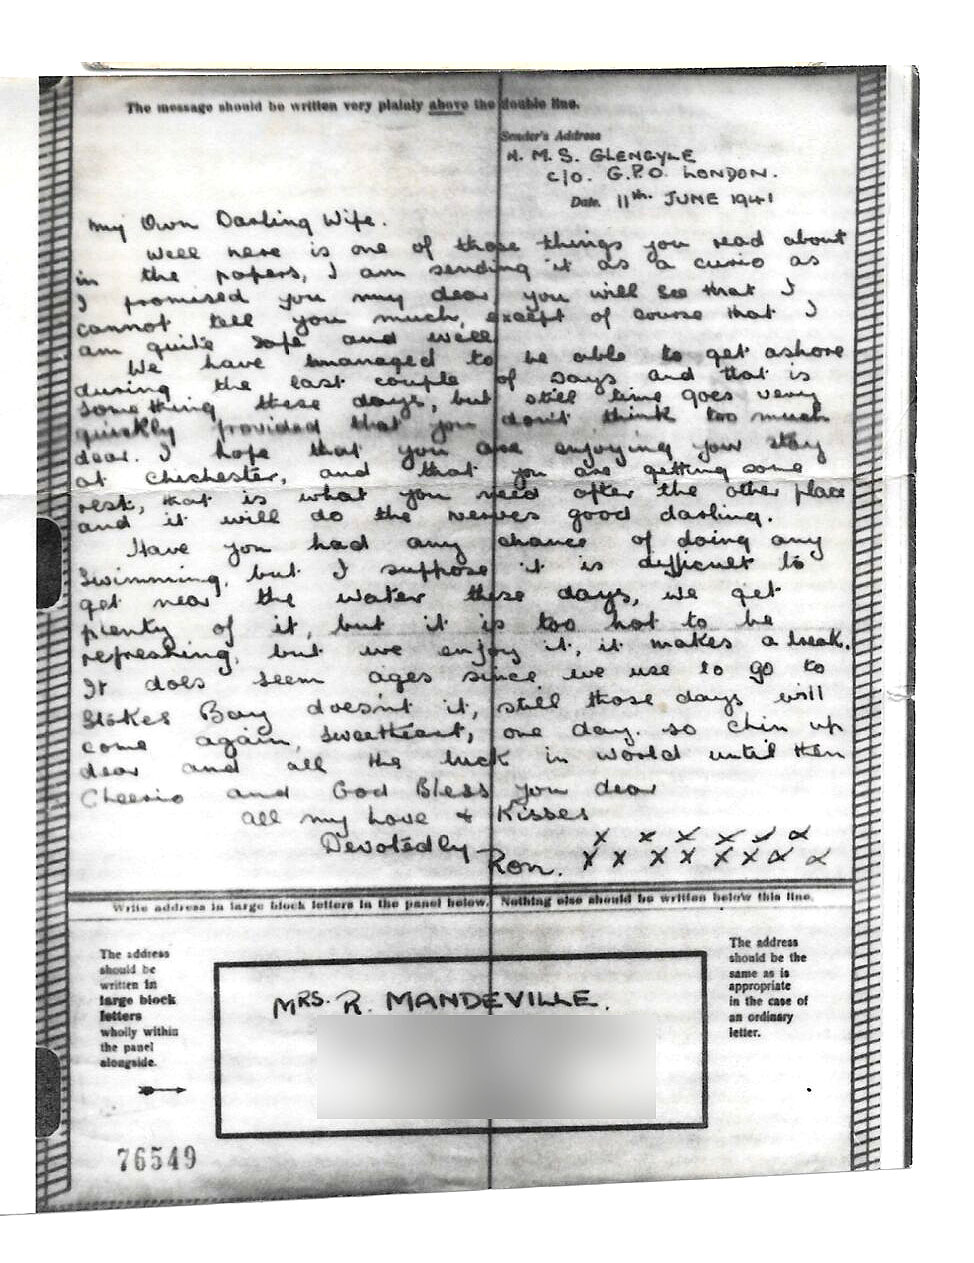 The message should be written very plainly above the double line.
Sender's Address
H. M. S. GLENGYLE
C/O. G.P.O. LONDON.
Date. 11th. JUNE 1941
My Own Darling Wife.
Well here is one of those things you read about
in the papers, I am sending it as a curio as
I promised you my dear, you will see that I
cannot tell you much, except of course that I
am quite safe and well
We have managed to be able to get ashore
during the last couple of days and that is
something these days, but still time goes very
quickly provided that you don't think too much
dear. I hope that you are enjoying your stay
at Chichester, and that you are getting some
rest, that is what you need after the other place
and it will do the nerves good darling.
Have you had any chance of doing any
swimming, but I suppose it is difficult to
get near the water these days, we get
plenty of it, but it is too hot to be
refreshing, but we enjoy it, it makes a break.
It does seem ages since we use to go to
Stokes Bay doesn't it, still those days will
come again, sweetheart, one day. so chin up
dear and all the luck in world until then
Cheerio and God Bless you dear
all my Love + Kisses
x x x x x x
Devotedly
Ron. x x x x x x x x
Write address in large block letters in the panel below. Nothing else should be written below this line.
The address
should be
written in
large block
letters
wholly within
the panel
alongside.
The address
should be the
same as is
appropriate
in the case of
an ordinary
letter.
MRS. R. MANDEVILLE.
76549